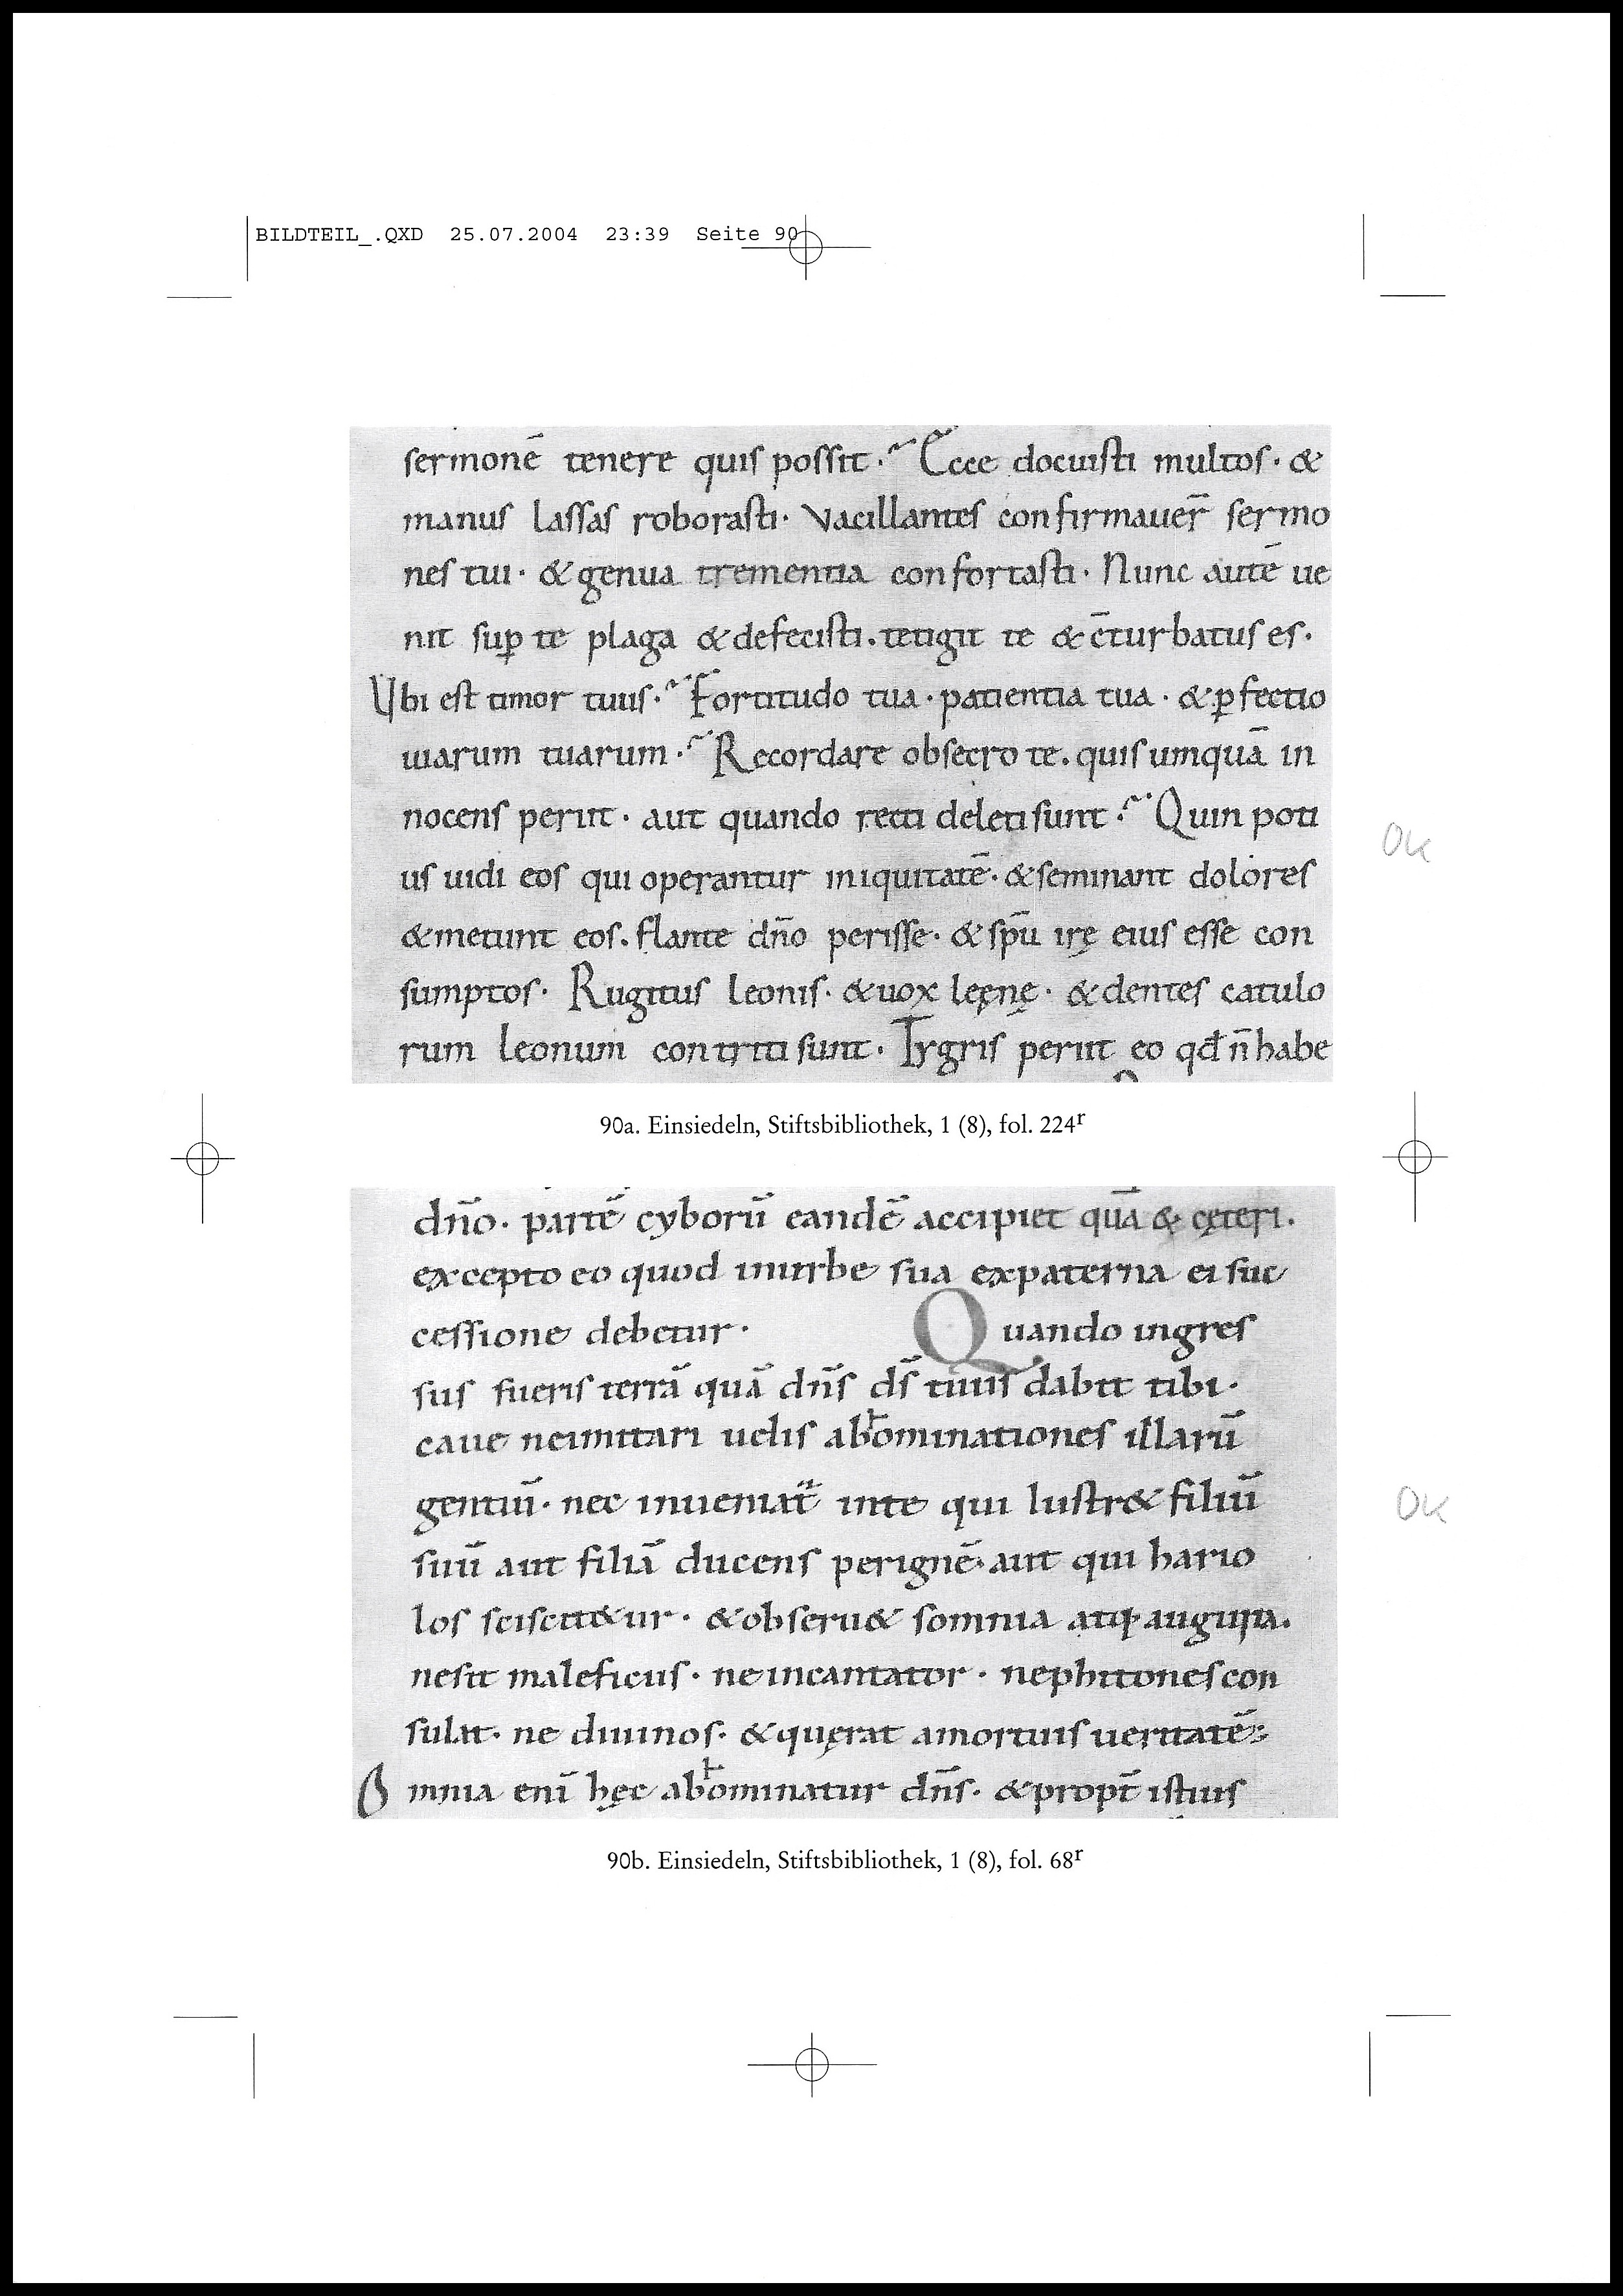 BILDTEIL_.QXD 25.07.2004 23:39 Seite 90
sermonē tenere quis possit. Ecce docuisti multos· &
manus lassas roborasti· Vacillantes confirmauer̄ sermo
nes tui· & genua trementia confortasti· Nunc autē ue
nit suꝑ te plaga & defecisti. tetigit te & c̄turbatus es.
Vbi est timor tuus· Fortitudo tua· patientia tua· & ꝑfectio
uiarum tuarum· Recordare obsecro te. quis umquā in
nocens periit· aut quando recti deleti sunt· Quin poti
us uidi eos qui operantur iniquitatē· & seminant dolores
& metunt eos. flante dn̄o perisse· & sp̄u irę eius esse con
sumptos· Rugitus leonis· & uox leęnę· & dentes catulo
rum leonum contriti sunt· Tygris periit eo qđ n̄ habe
OK
90a. Einsiedeln, Stiftsbibliothek, 1 (8), fol. 224r
dn̄o· partē cyborū eandē accipiet quā & cęteri.
excepto eo quod inurbe sua expaterna ei suc
cessione debetur· Quando ingres
sus fueris terrā quā dn̄s ds̄ tuus dabit tibi·
caue neimitari uelis abhominationes illarū
gentiū· nec inueniat᷑ inte qui lustr& filiū
suū aut filiā ducens perignē· aut qui hario
los sciscit&ur· & obseru& somnia atq· auguria.
nesit maleficus· ne incantator· nephitones con
sulat· ne diuinos· & quęrat amortuis ueritatē·
Omnia enī hęc abhominatur dn̄s· & propt̄ istius
OK
90b. Einsiedeln, Stiftsbibliothek, 1 (8), fol. 68r